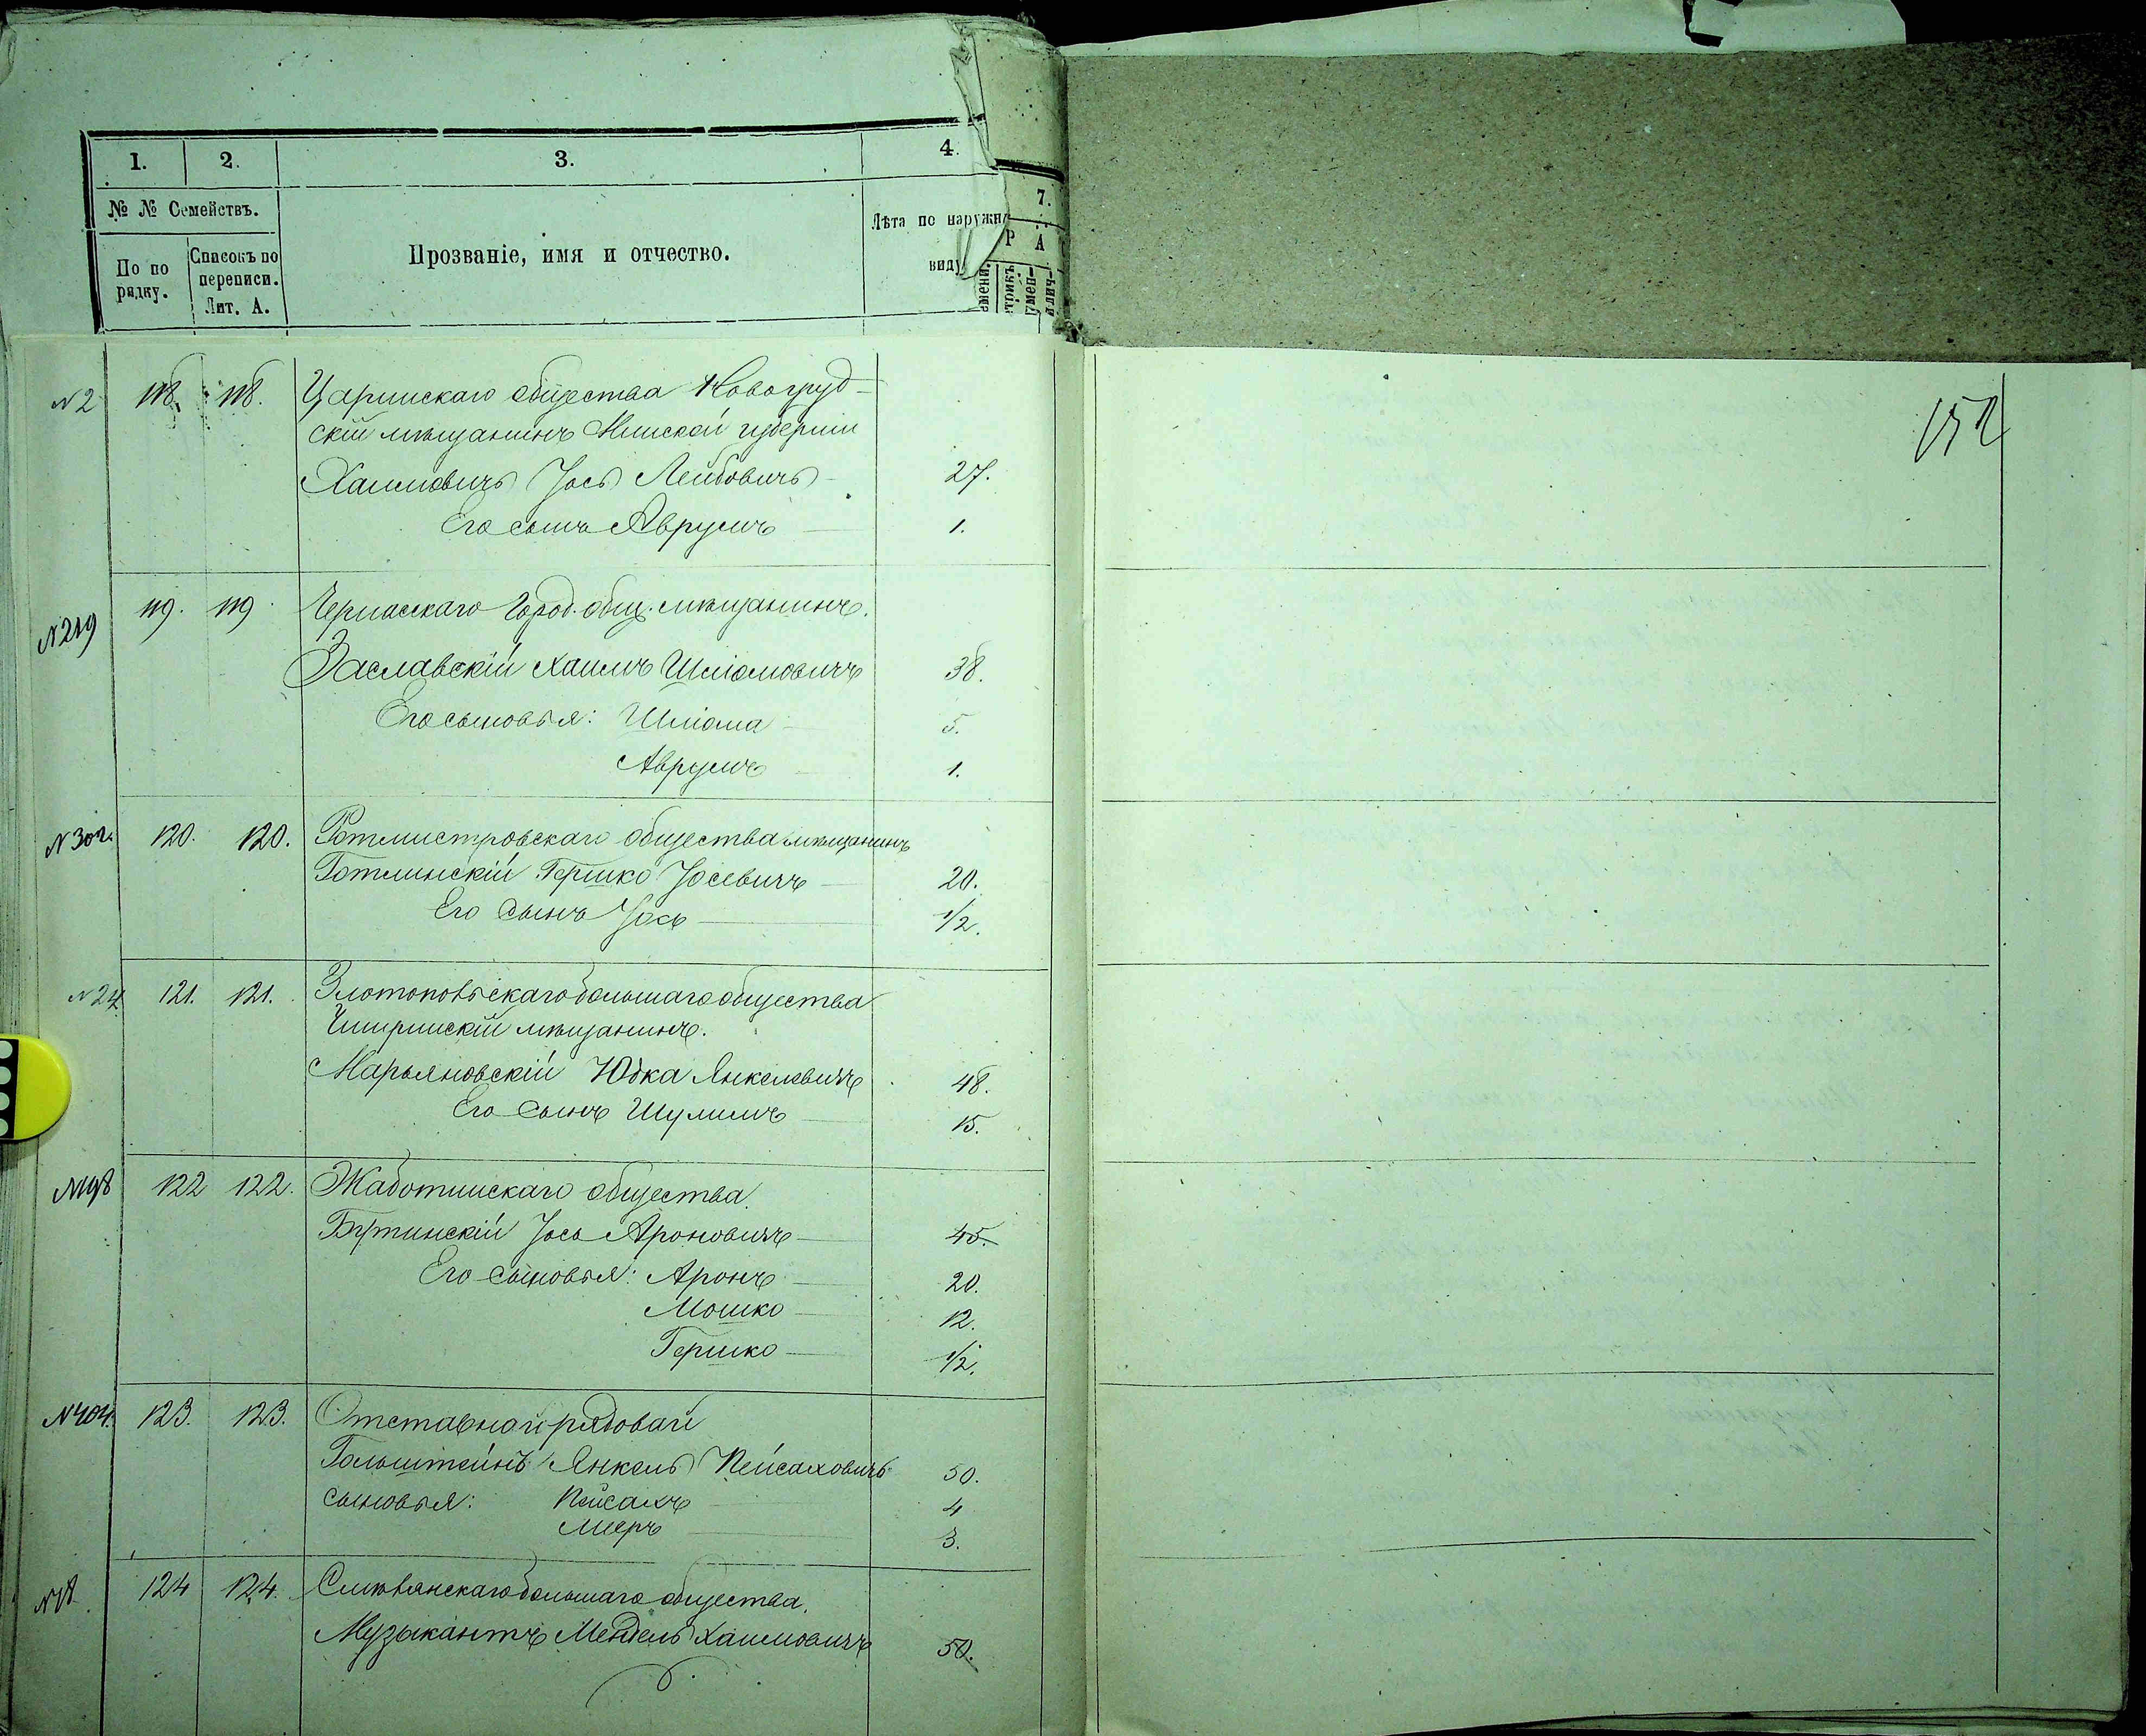 1. 2. 3. 4.
7.
№ № Семействъ.
По по рядку.
Списокъ по переписи. Лит. А.
Прозваніе, имя и отчество.
Лѣта по наружн
виду
Р А
N2 118. 118. Царинскаго общества Новогруд-
скій мѣщанинъ Минской губерніи
Хаимовичъ Іось Лейбовичъ 27.
Его сынъ Аврумъ 1.
N219 119. 119. Черкасскаго Город. общ. мѣщанинъ.
Заславскій Хаимъ Шліомовичъ 38.
Его сыновья: Шліома 5.
Аврумъ 1.
N302. 120. 120. Ротмистровскаго общества мѣщанинъ
Готлинскій Гершко Іосевичъ 20.
Его сынъ Іось 1/2.
N24 121. 121. Златопольскаго большаго общества
Чигиринскій мѣщанинъ.
Марьяновскій Юдка Янкелевичъ 48.
Его сынъ Шулимъ 15.
N198 122 122. Жаботинскаго общества.
Бутинскій Іось Ароновичъ 45.
Его сыновья: Аронъ 20.
Мошко 12.
Гершко 1/2.
N404. 123. 123. Отставной рядовай
Гольштейнъ Янкель Пейсаховичъ 50.
сыновья: Пейсахъ 4
Мееръ 3.
124 124. Смѣлянскаго большаго общества.
Музыкантъ Мендель Хаимовичъ 50.
152